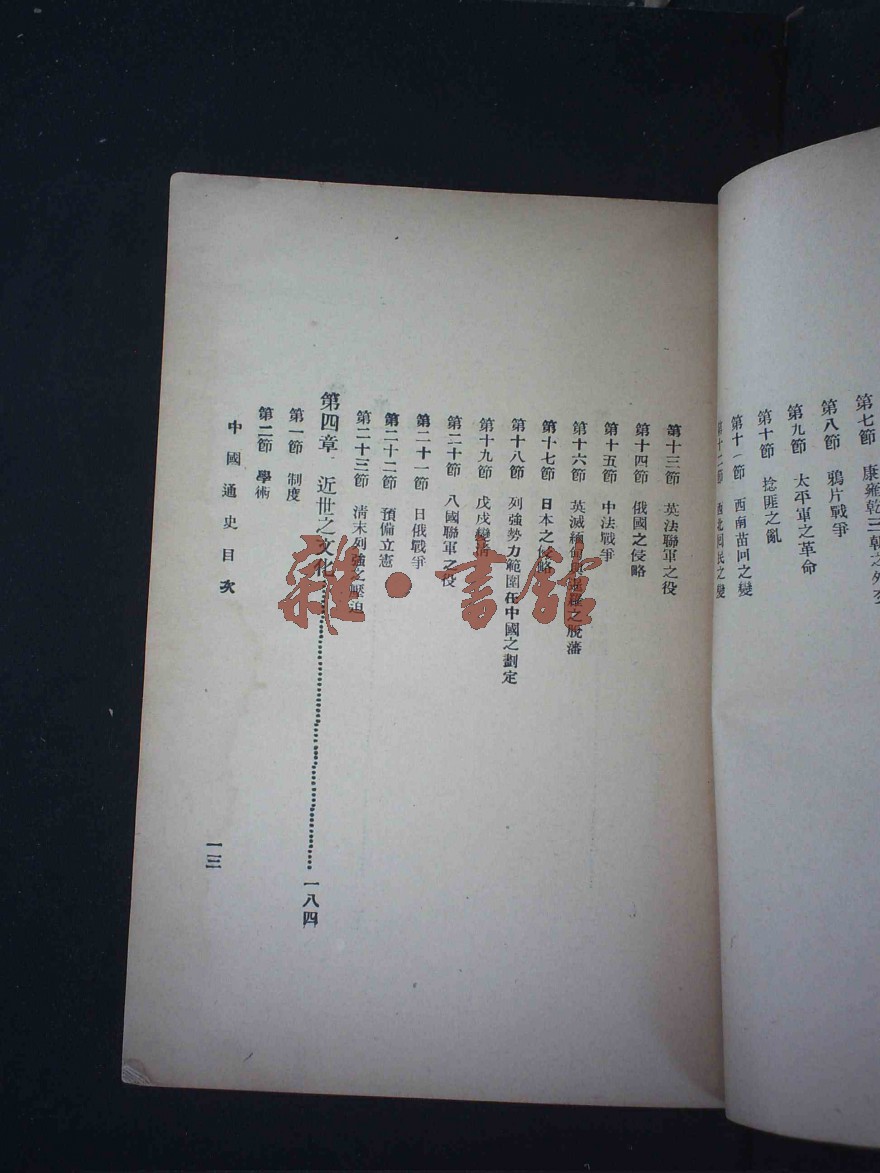 第七節 康雍乾三朝之外
第八節 鴉片戰爭
第九節 太平軍之革命
第十節 捻匪之亂
第十一節 西南苗回之變
第十二節 西北回民之變
第十三節 英法聯軍之役
第十四節 俄國之侵略
第十五節 中法戰爭
第十六節 英滅緬甸與暹羅之脫藩
第十七節 日本之侵略
第十八節 列強勢力範圍在中國之劃定
第十九節 戊戌變法
第二十節 八國聯軍之役
第二十一節 日俄戰爭
第二十二節 預備立憲
第二十三節 清末列強之壓迫
第四章 近世之文化…………一八四
第一節 制度
第二節 學術
中國通史目次
一三
雜·書館